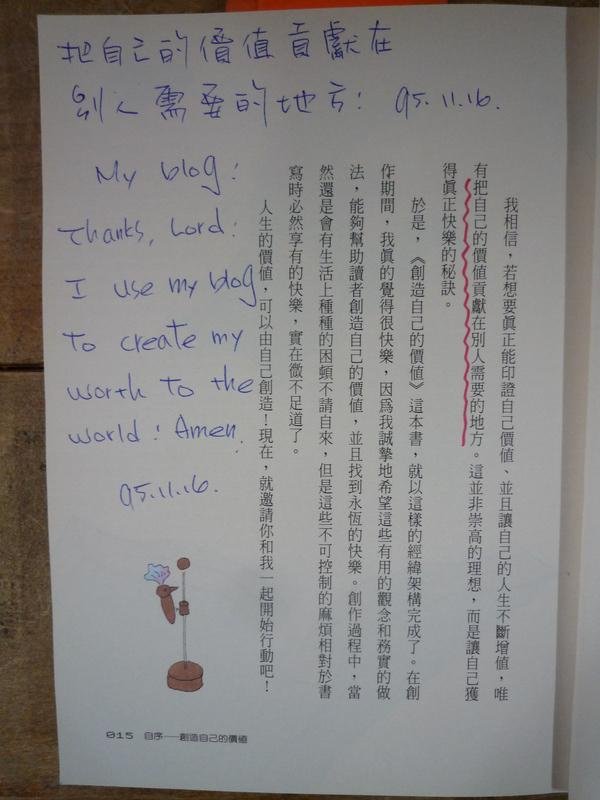 把自己的價值貢獻在
別人需要的地方! 95.11.16.
My blog:
Thanks, Lord!
I use my blog
to create my
worth to the
world! Amen.
95.11.16.
我相信，若想要真正能印證自己價值、並且讓自己的人生不斷增值，唯
有把自己的價值貢獻在別人需要的地方。這並非崇高的理想，而是讓自己獲
得真正快樂的秘訣。
於是，《創造自己的價值》這本書，就以這樣的經緯架構完成了。在創
作期間，我真的覺得很快樂，因為我誠摯地希望這些有用的觀念和務實的做
法，能夠幫助讀者創造自己的價值，並且找到永恆的快樂。創作過程中，當
然還是會有生活上種種的困頓不請自來，但是這些不可控制的麻煩相對於書
寫時必然享有的快樂，實在微不足道了。
人生的價值，可以由自己創造！現在，就邀請你和我一起開始行動吧！
015 自序——創造自己的價值